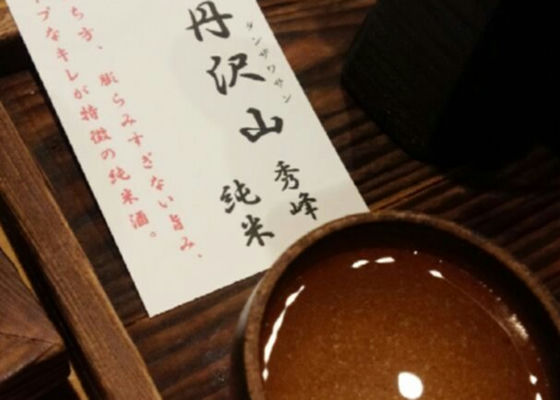 丹沢山
タンザワサン
秀峰
純米
ちす、膨らみすぎない旨み、
プなキレが特徴の純米酒。